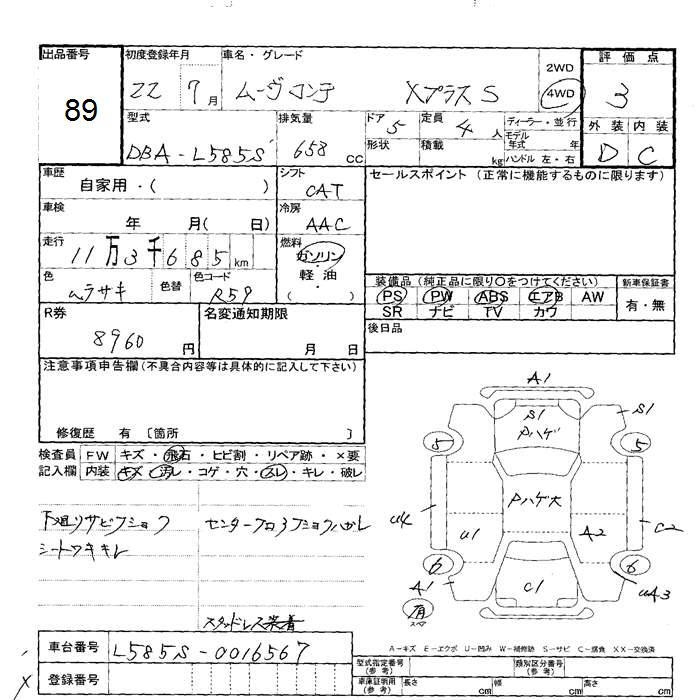 出品番号 初度登録年月 車名・グレード 評価点
89 22 7月 ムーヴコンテ XプラスS 2WD 4WD 3
型式 排気量 ドア 定員 ディーラー・並行 外装 内装
DBA-L585S 658 cc 5 4人 モデル年式 年 D C
形状 積載 kg ハンドル 左・右
車歴 シフト セールスポイント (正常に機能するものに限ります)
自家用・( ) CAT
車検 冷房
年 月( 日) AAC
走行 燃料
11万3千685km ガソリン・軽油 ( )
色 色替 色コード 装備品 (純正品に限り○をつけてください) 新車保証書
ムラサキ R59 PS PW ABS エアB AW 有・無
SR ナビ TV カワ
R券 名変通知期限 後日品
8960円 月 日
注意事項申告欄(不具合内容等は具体的に記入して下さい)
修復歴 有 〔箇所 〕
検査員 FW キズ・飛石・ヒビ割・リペア跡・×要
記入欄 内装 キズ・汚レ・コゲ・穴・スレ・キレ・破レ
A1
S1 S1
Pハゲ
5 5
Pハゲ大
U4 U1 A2 C2
6 6
A1 C1 UA3
有
スペア
下廻リサビフショク
シートワキキレ
スタッドレス装着
車台番号 L585S-0016567
登録番号
A-キズ E-エクボ U-凹み W-補修跡 S-サビ C-腐食 XX-交換済
型式指定番号(参考) 類別区分番号(参考)
車庫証明用(参考) 長さ cm 幅 cm 高さ cm